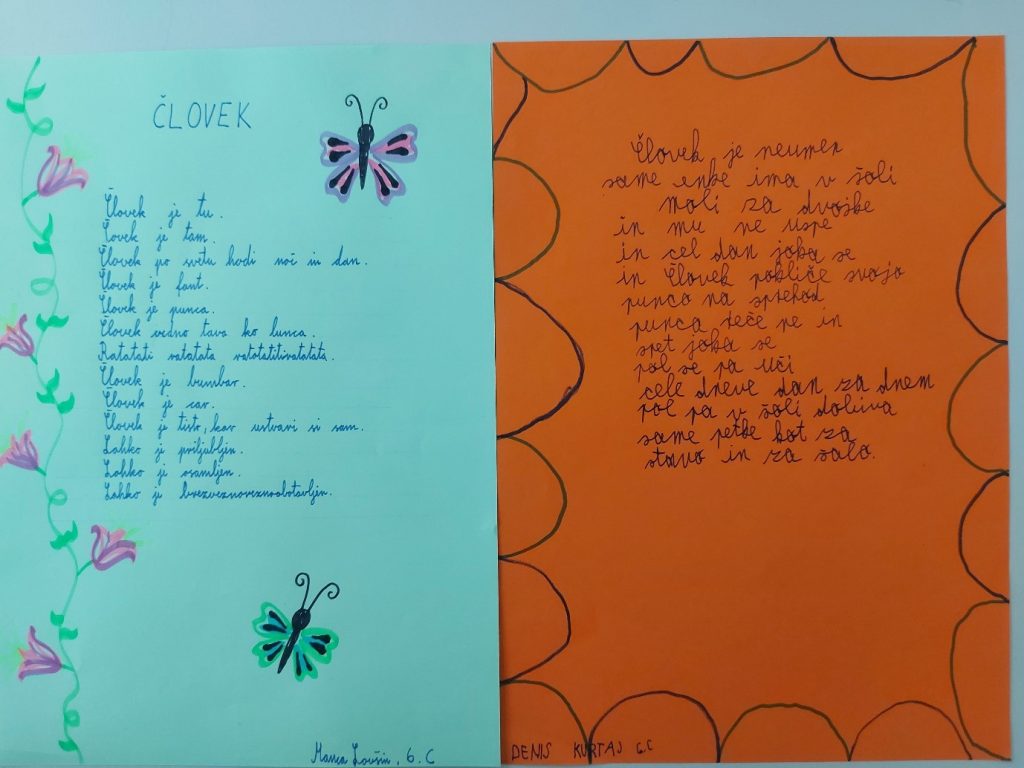 ČLOVEK
Človek je tu.
Čovek je tam.
Človek po svetu hodi noč in dan.
Človek je fant.
Človek je punca.
Človek vedno tava ko lunca.
Ratatati ratatata ratotatitiratatata.
Človek je bumbar.
Človek je car.
Človek je tisto, kar ustvari si sam.
Lahko je priljubljen.
Lahko je osamljen.
Lahko je
Manca Lovšin, 6. C
Človek je neumen
same enke ima v šoli
moli za dvojke
in mu ne uspe
in cel dan joka se
in Človek pokliče svojo
punco na sprehod
punca reče ne in
spet joka se
pol se pa uči
cele dneve dan za dnem
pol pa v šoli dobiva
same petke kot za
stavo in za salo.
DENIS KURTAJ 6.C